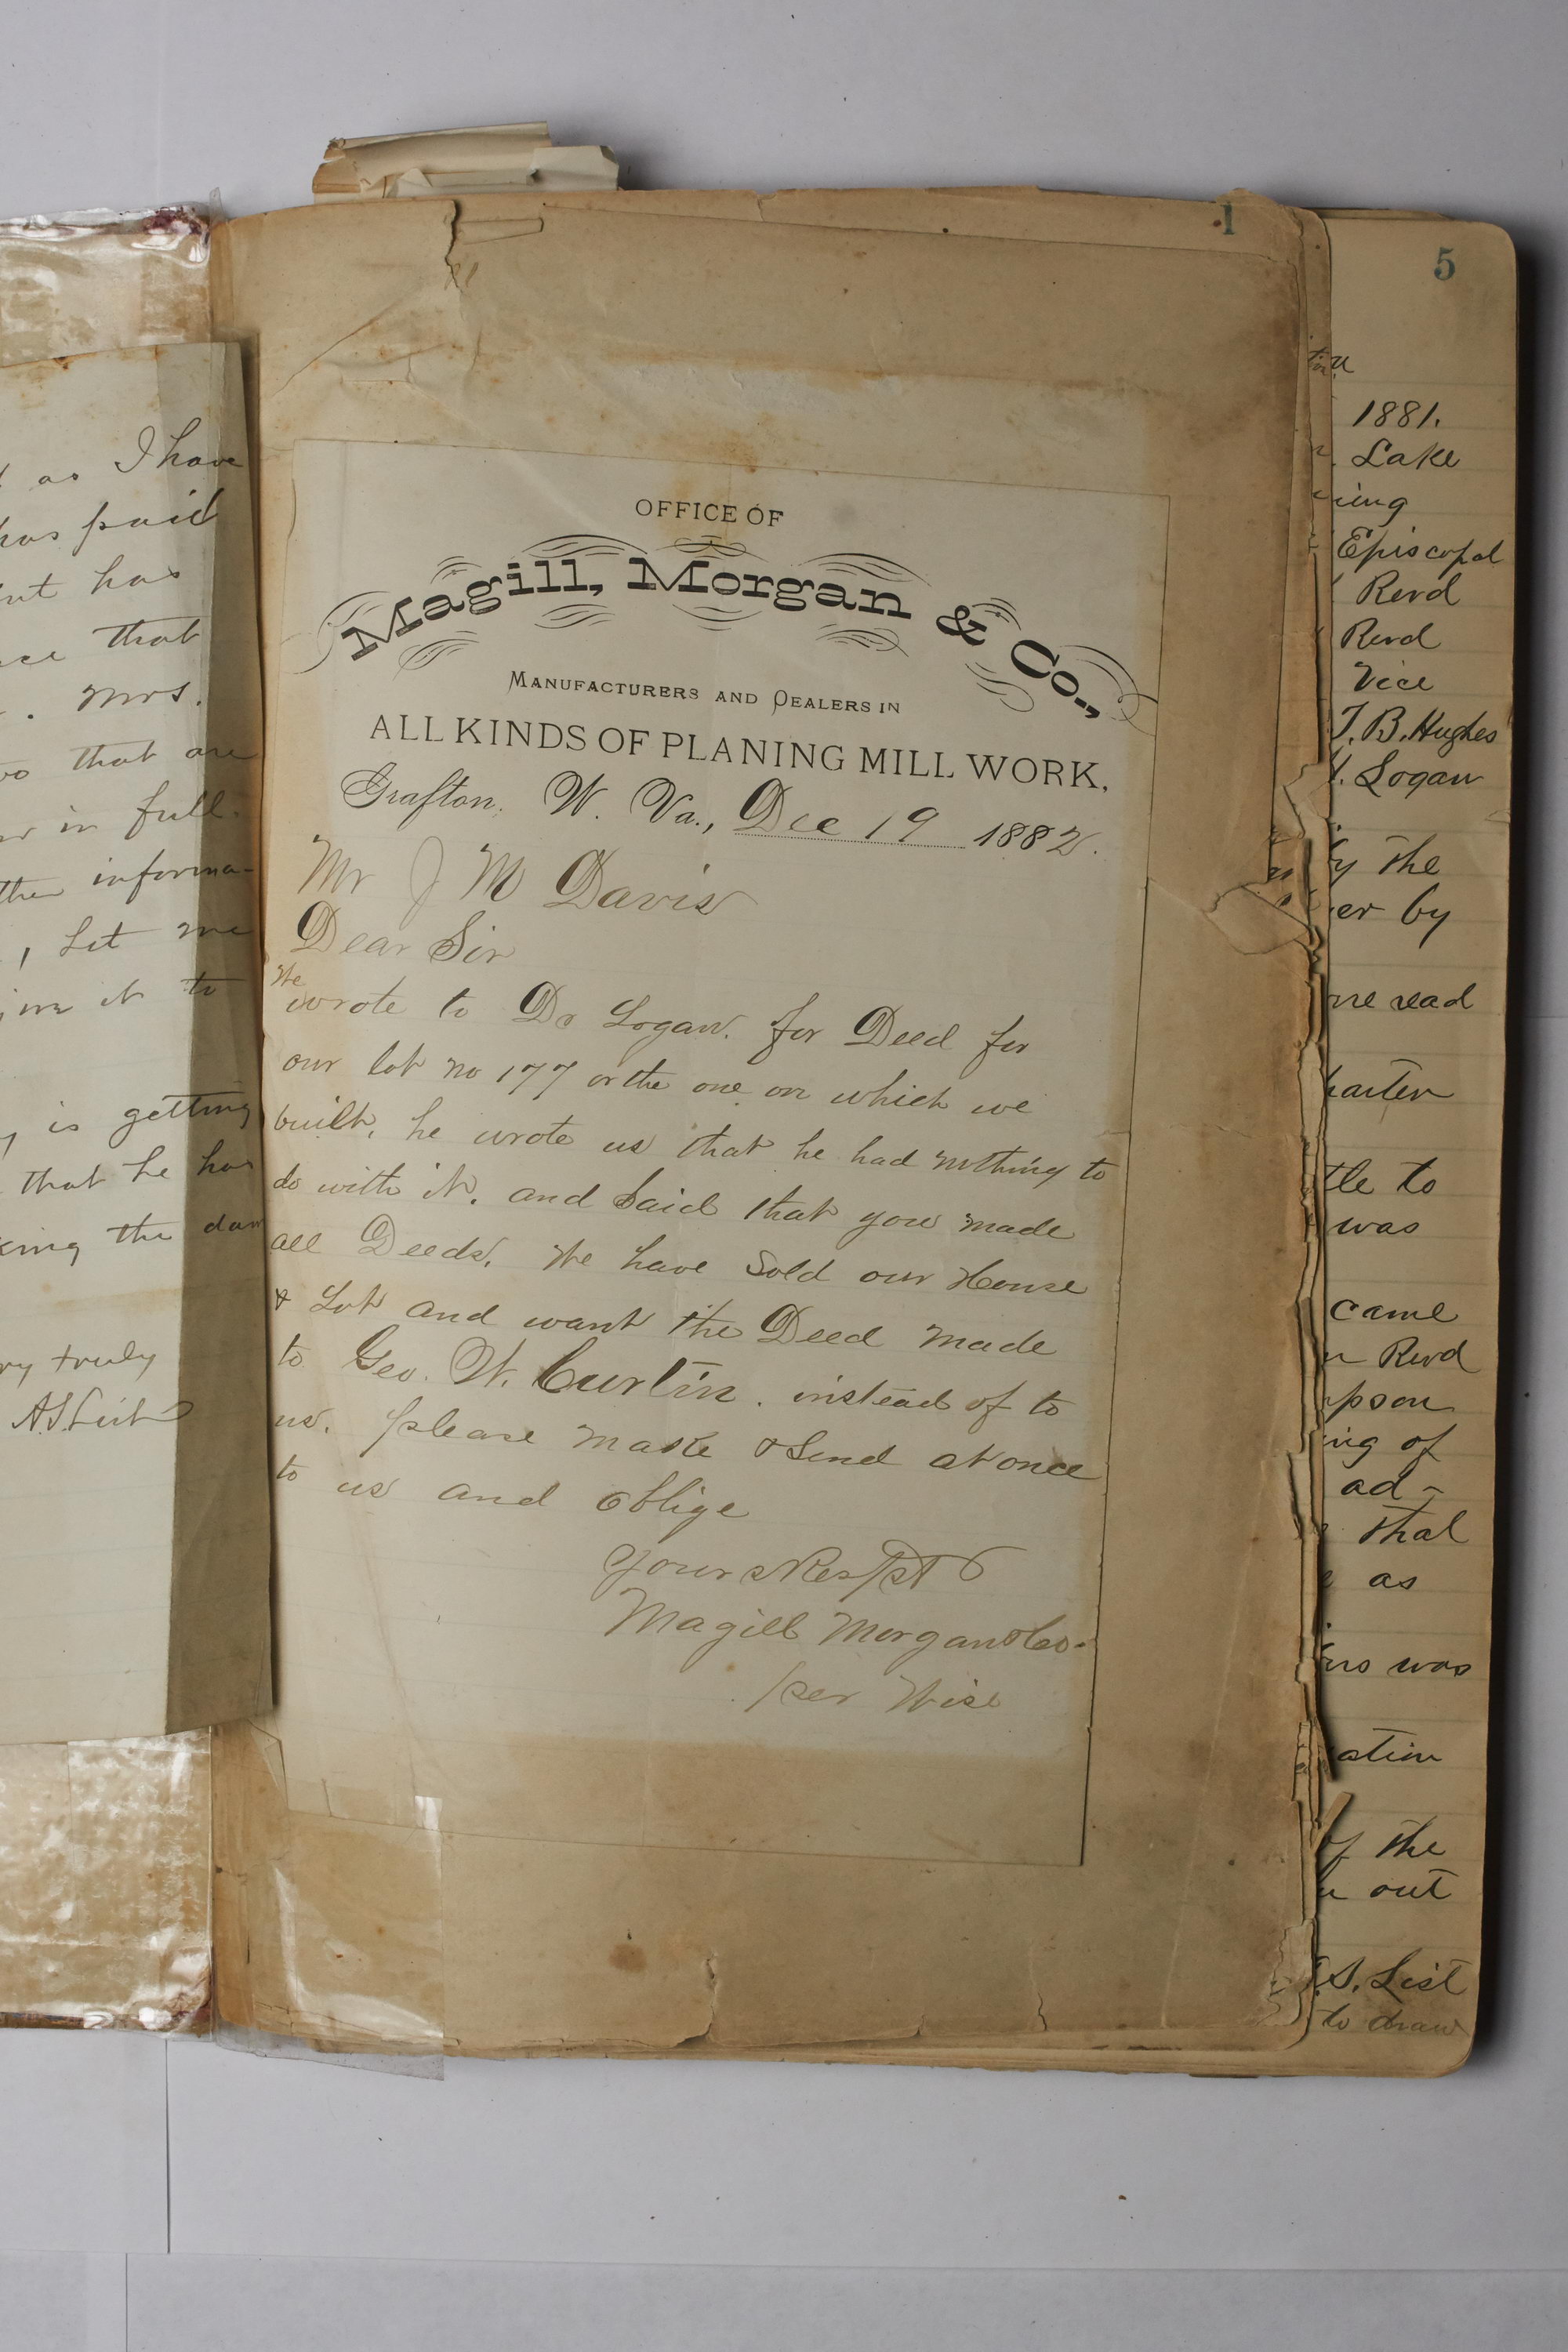 as I have
has paid
has
that
. Mrs.
that are
in full.
informa-
, Let me
it to
is getting
that he has
the dam
truly
A.S. List
1
OFFICE OF
Magill, Morgan & Co.,
MANUFACTURERS AND DEALERS IN
ALL KINDS OF PLANING MILL WORK.
Grafton, W. Va., Dec 19 1882.
Mr J M Davis
Dear Sir
We
wrote to Dr Logan. for Deed for
our lot no 177 or the one on which we
built, he wrote us that he had nothing to
do with it. and Said that you made
all Deeds, We have Sold our House
& Lot and want the Deed made
to Geo. W. Curtin. instead of to
us. please make & Send at once
to us and oblige
Yours Respt
Magill Morgan & Co.
per Wise
5
1881.
Lake
Episcopal
Revd
Revd
Vice
T. B. Hughes
. Logan
the
by
read
to
was
came
Revd
of
ad-
that
as
was
the
out
S. List
to draw